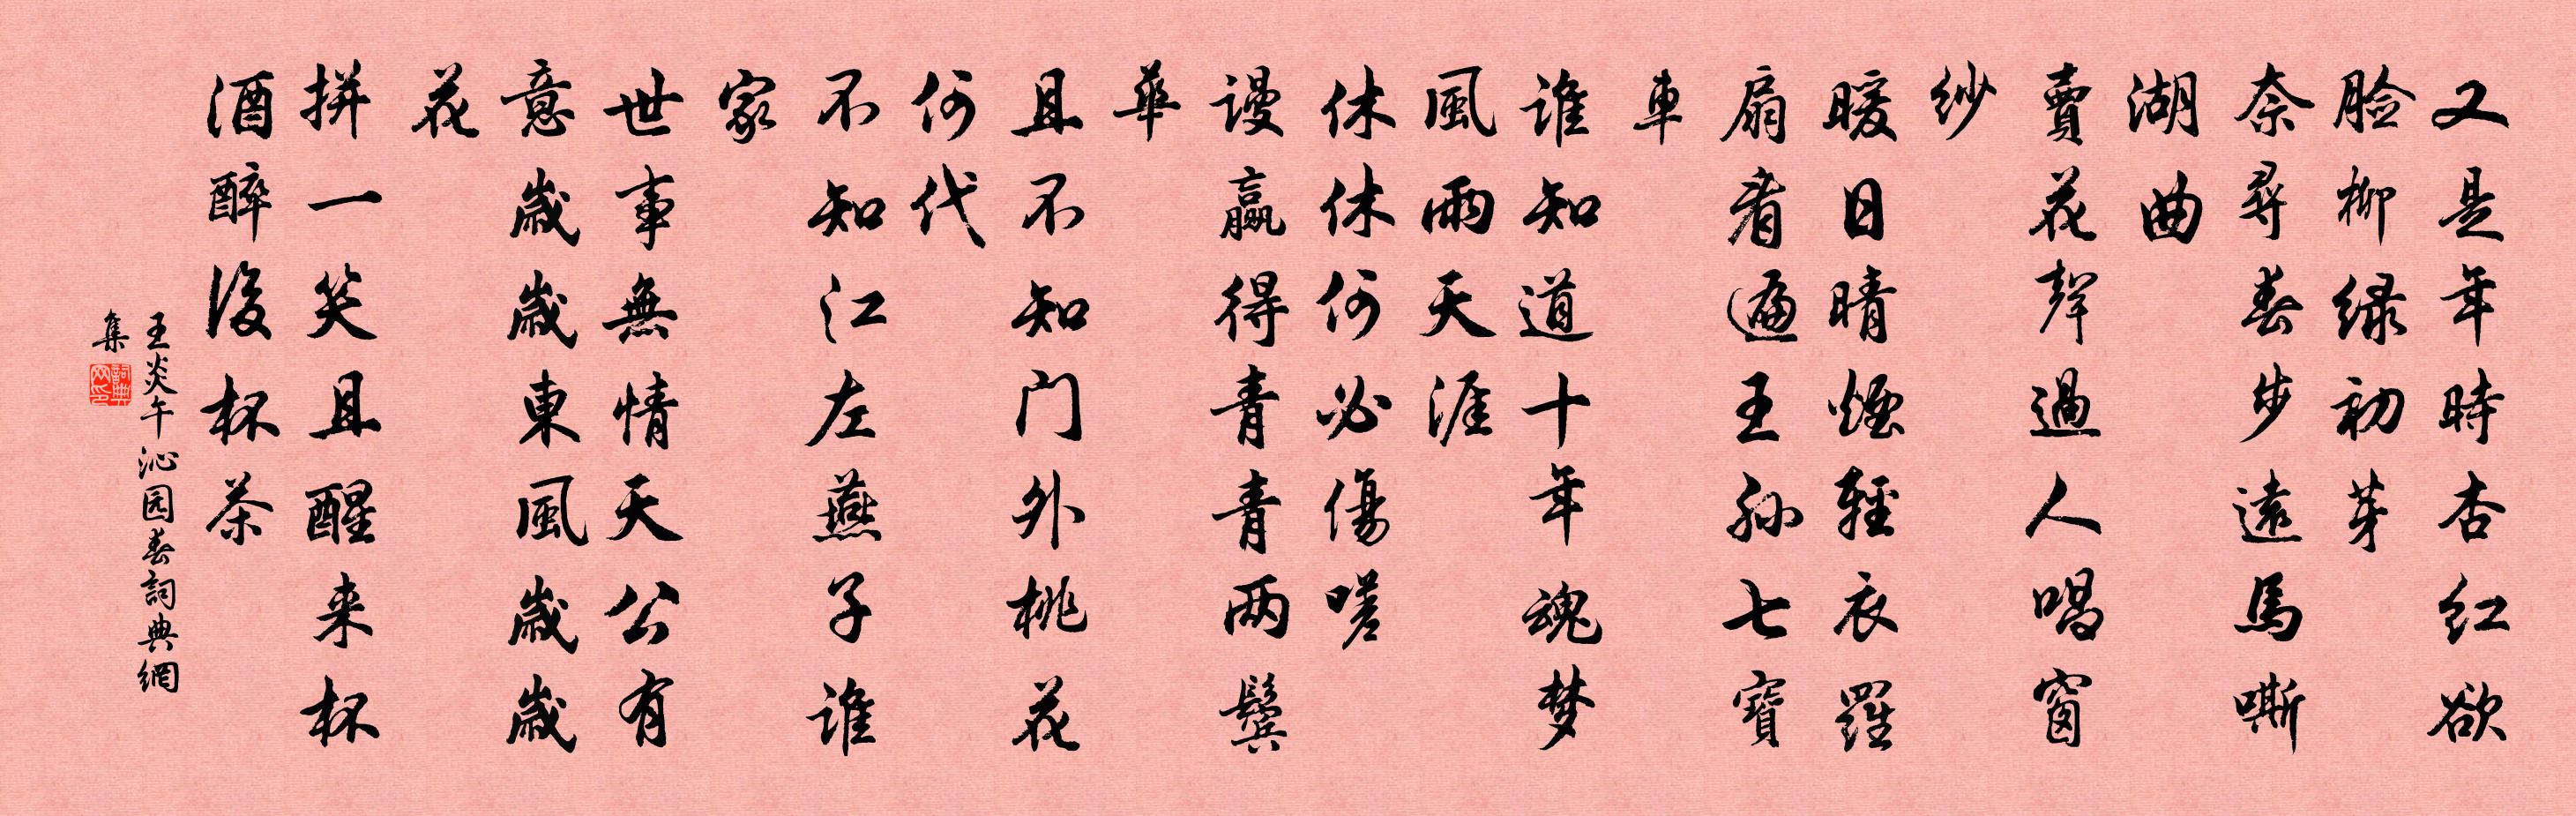 又是年時杏红欲
脸柳绿初芽
奈尋春步遠馬嘶
湖曲
賣花聲過人唱窗
纱
暖日晴煙輕衣羅
扇看遍王孙七寶
車
谁知道十年魂梦
風雨天涯
休休何必傷嗟
谩赢得青青两鬓
華
且不知门外桃花
何代
不知江左燕子谁
家
世事無情天公有
意歲歲東風歲歲
花
拼一笑且醒来杯
酒醉後杯茶
王炎午沁园春詞典網
集
詞典网印